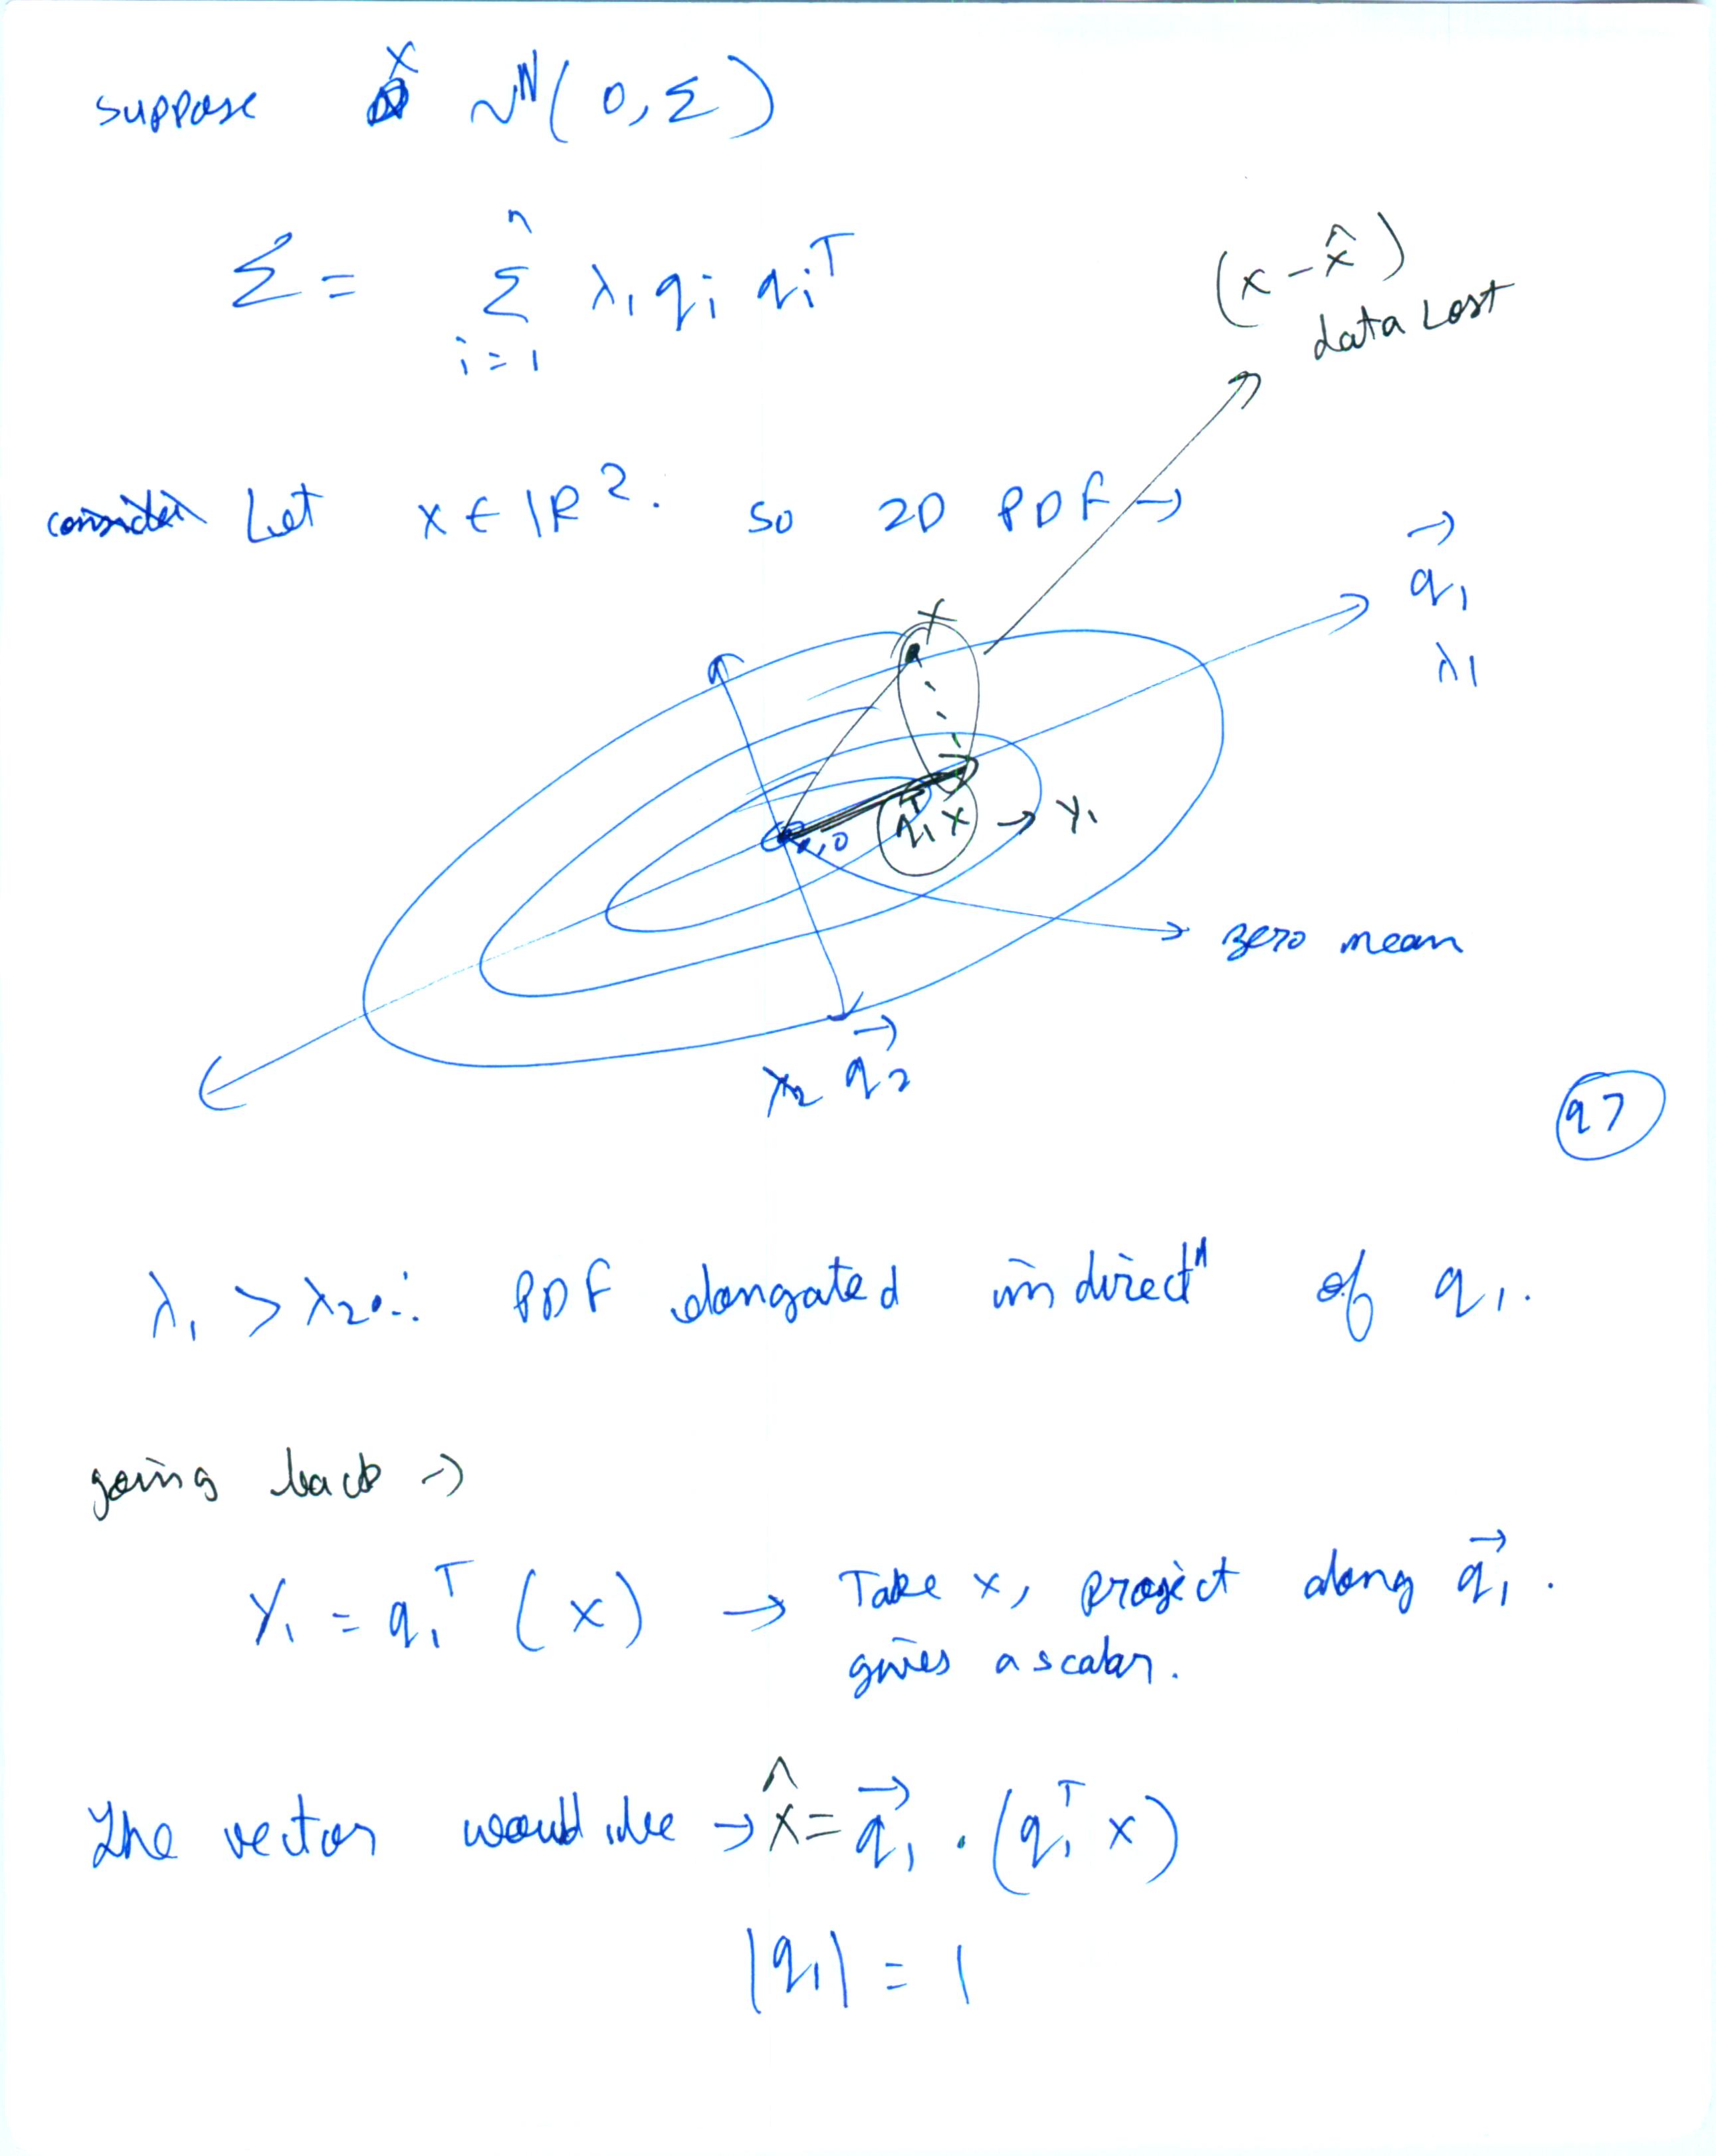 suppose X ~ N(0, Σ)
Σ = n Σ i=1 λ₁ qᵢ qᵢᵀ
(x - x̂)
data Lost
consider Let x ∈ ℝ². so 2D PDF →
q⃗₁
λ₁
X
q₁ᵀx → Y₁
zero mean
λ₂ q⃗₂
97
λ₁ > λ₂ ∴ PDF elongated in directⁿ of q₁.
going back →
Y₁ = q₁ᵀ (x) → Take x, project along q⃗₁.
gives a scalar.
The vector would be → x̂ = q⃗₁ . (q₁ᵀ x)
|q₁| = 1